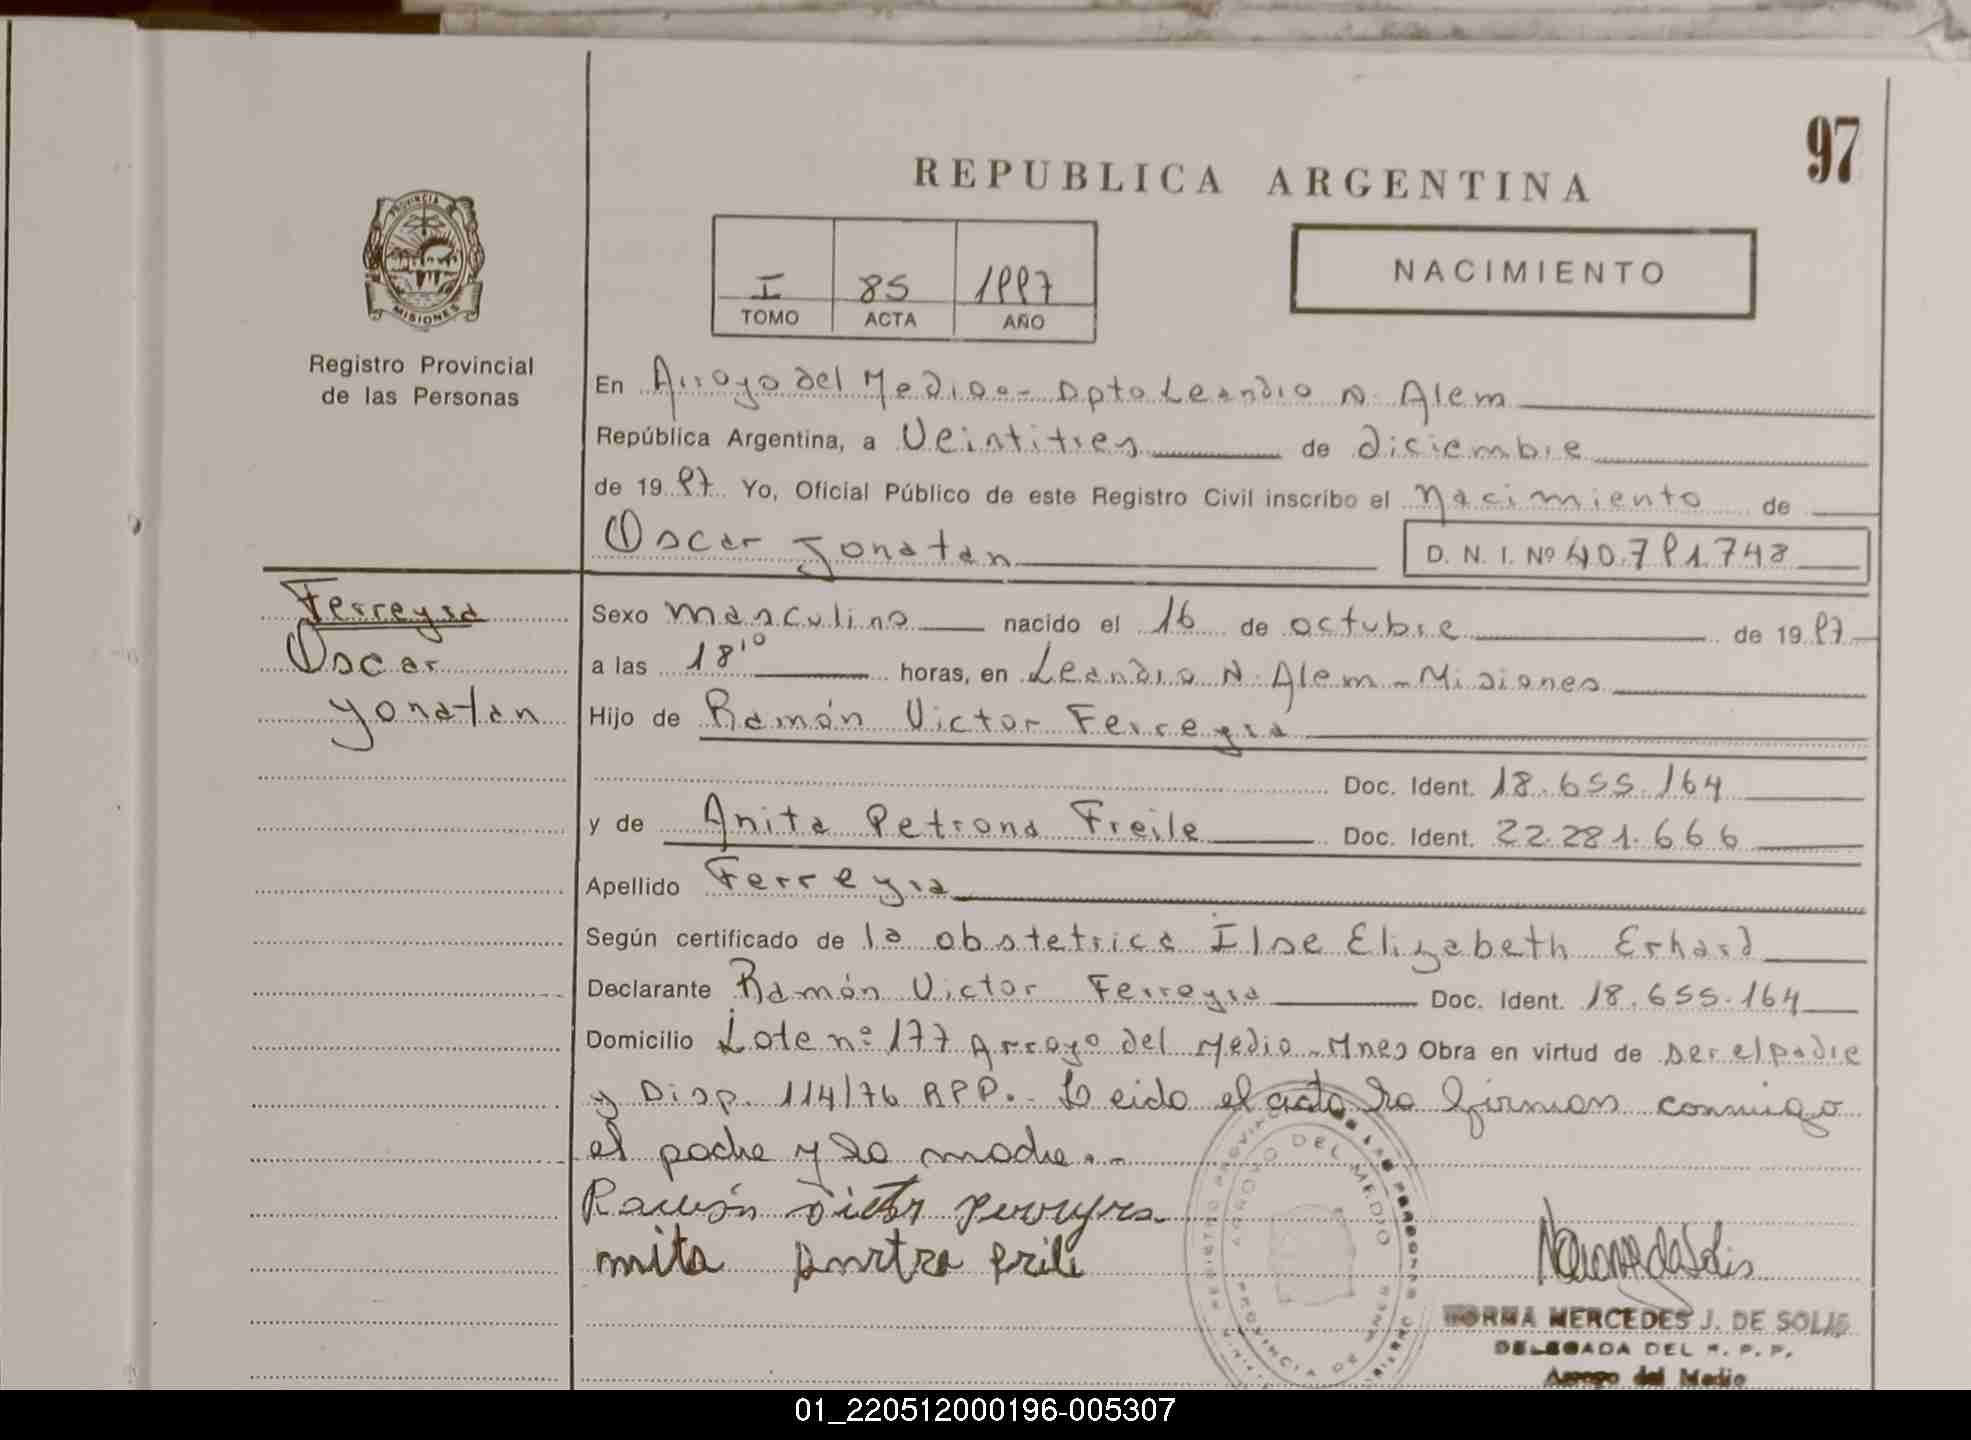 97
REPUBLICA ARGENTINA
PROVINCIA DE
MISIONES
Registro Provincial
de las Personas
I 85 1997
TOMO ACTA AÑO
NACIMIENTO
En Arroyo del Medio.- Dpto Leandro N. Alem
República Argentina, a Veintitres de diciembre
de 1997 Yo, Oficial Público de este Registro Civil inscribo el Nacimiento de
Oscar Jonatan D. N. I. Nº 40.791.748
Ferreyra
Oscar
Yonatan
Sexo Masculino nacido el 16 de octubre de 1997
a las 18'10 horas, en Leandro N. Alem - Misiones
Hijo de Ramón Victor Ferreyra
Doc. Ident. 18.655.164
y de Anita Petrona Freile Doc. Ident. 22.281.666
Apellido Ferreyra
Según certificado de la obstetrica Ilse Elizabeth Erhard
Declarante Ramón Victor Ferreyra Doc. Ident. 18.655.164
Domicilio Lote nº 177 Arroyo del Medio - Mnes Obra en virtud de ser el padre
y Disp. 114/76 RPP.- Leido el acta la firman conmigo
el padre y la madre.-
Ramón Victor Ferreyra
ARROYO DEL MEDIO
PROVINCIA DE
NORMA MERCEDES J. DE SOLIS
DELEGADA DEL R. P. P.
Arroyo del Medio
01_220512000196-005307